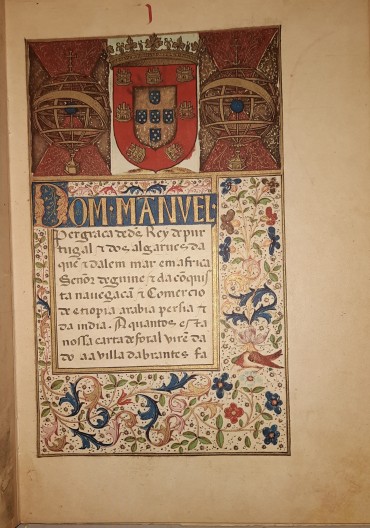 DOM · MANVEL ·
Per graca de ds̃ Rey de pur
tugal ⁊ dos algarues da
quẽ ⁊ dalem mar em africa
Senõr de guine ⁊ da cõquis
ta navegacam ⁊ Comercio
de etiopia arabia persia ⁊
da india. A quantos esta
nossa carta de foral virẽ da
do aa villa dabrantes fa